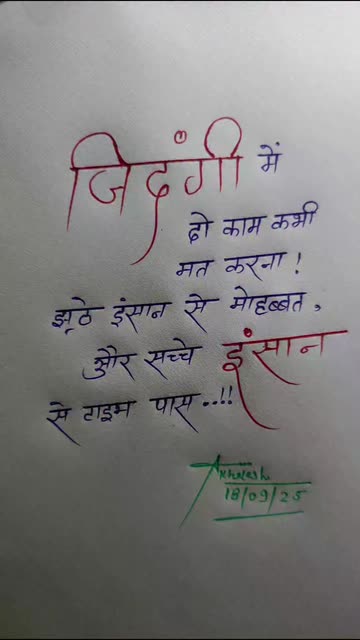 जिदंगी में
दो काम कभी
मत करना !
झूठे इंसान से मोहब्बत,
और सच्चे इंसान
से टाइम पास..!!
Akhilesh
18/09/25